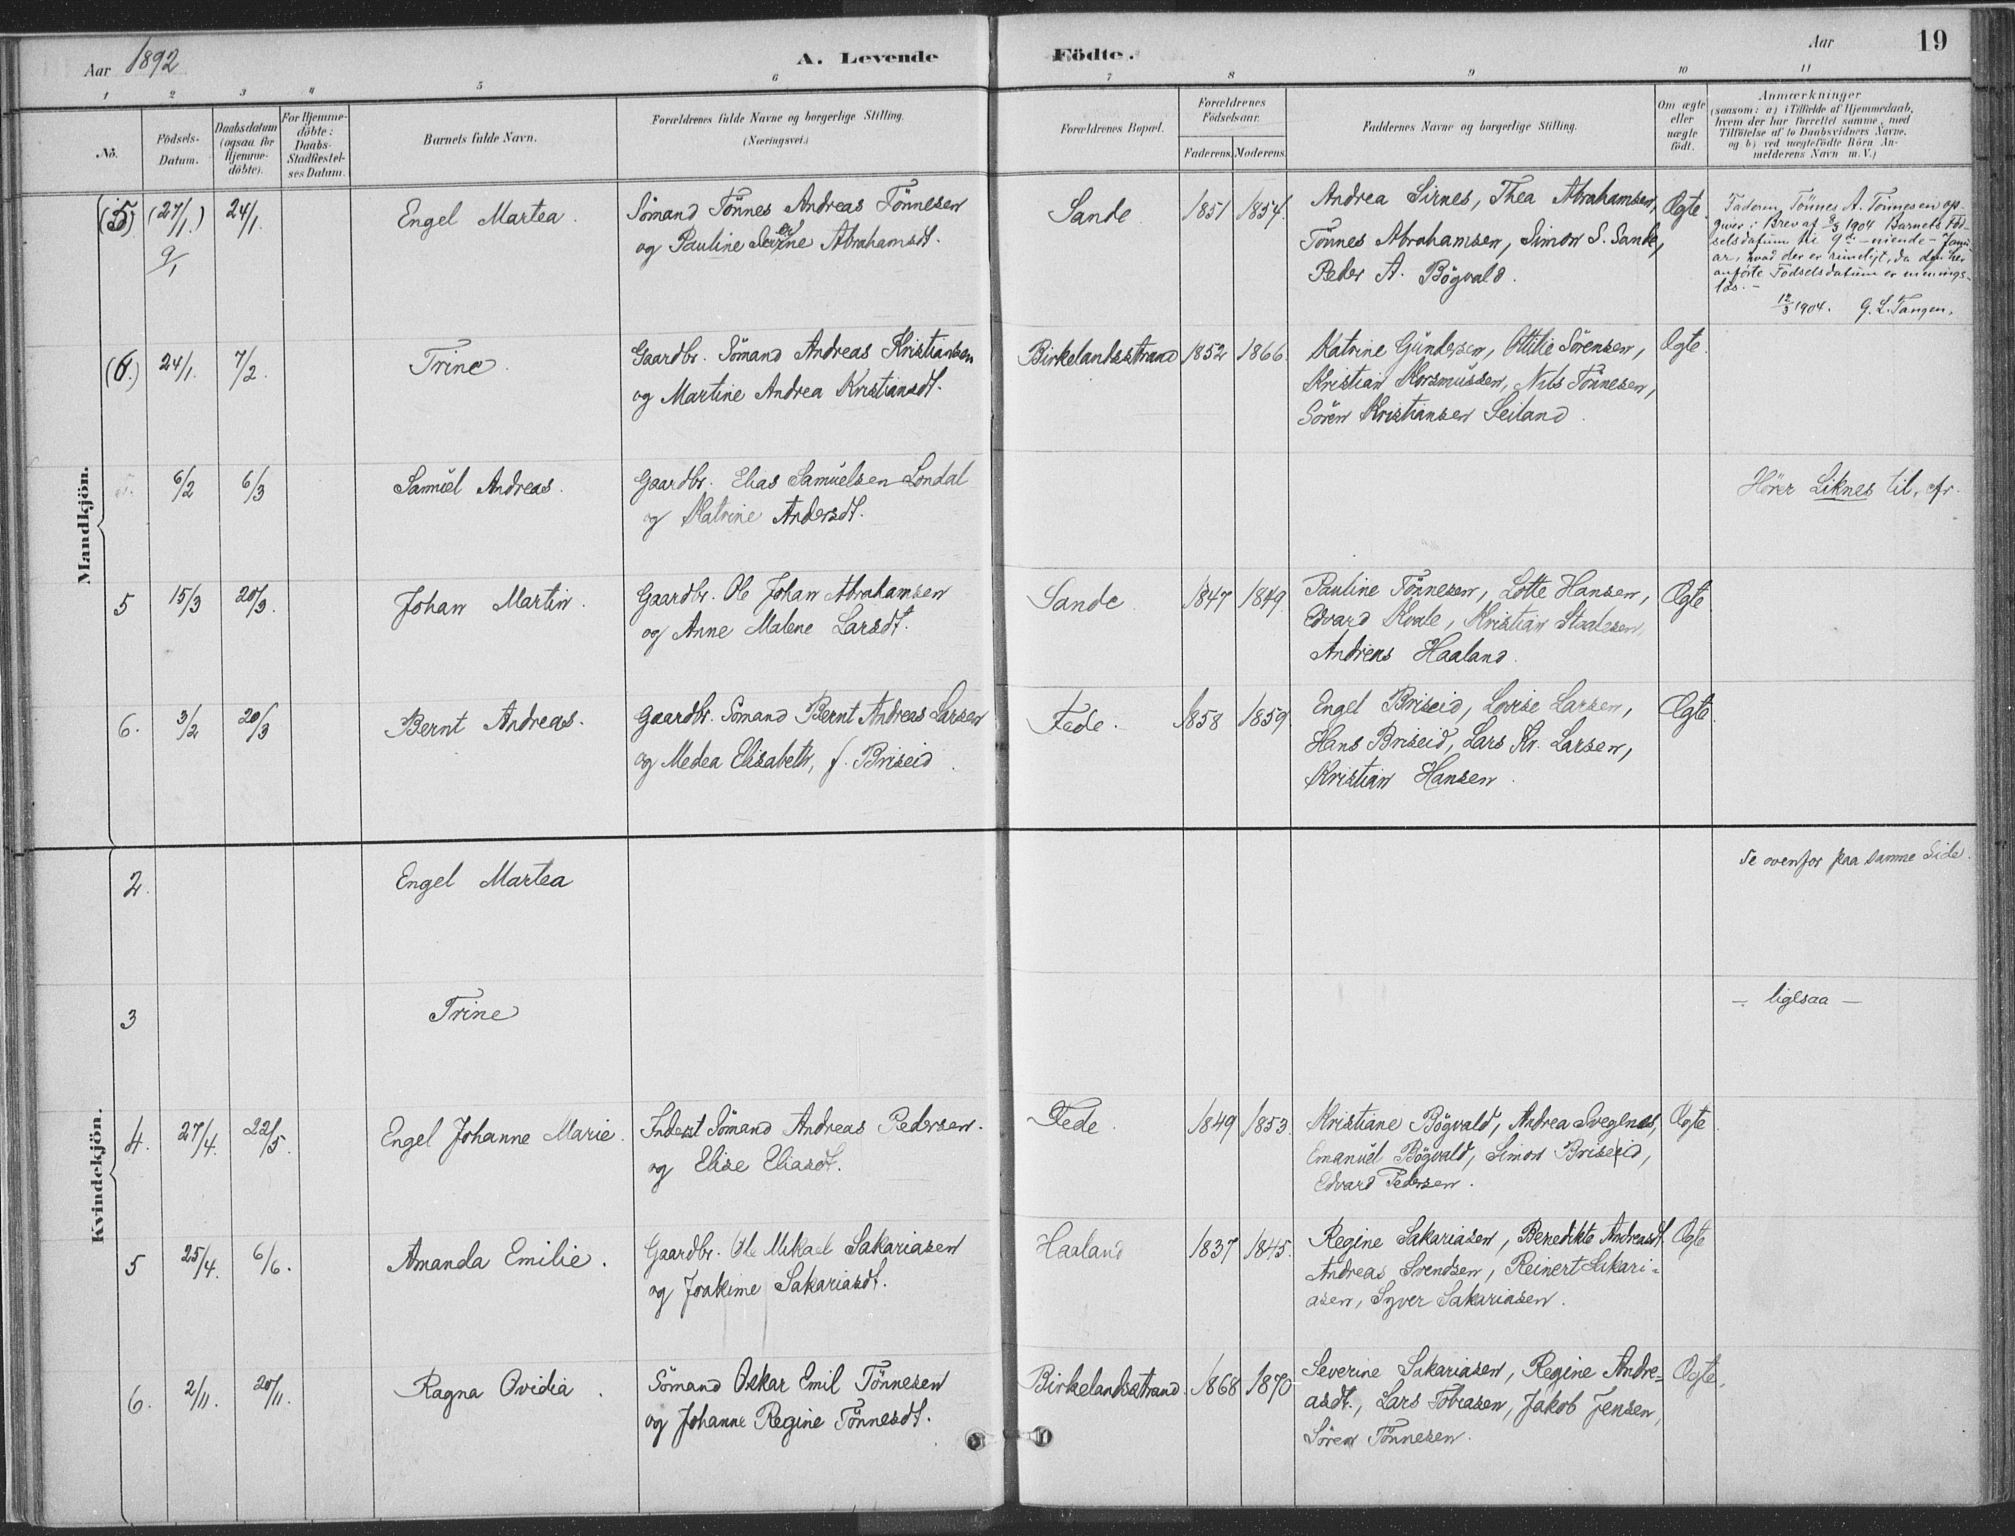 Aar 1892
A. Levende Födte.
Aar 19
1 2 3 4 5 6 7 8 9 10 11
No.
Födsels-
Datum.
Daabsdatum
(ogsaa for
Hjemme-
döbte).
For Hjemme-
döbte:
Daabs-
Stadfæstel-
ses Datum.
Barnets fulde Navn.
Forældrenes fulde Navne og borgerlige Stilling.
(Næringsvei.)
Forældrenes Bopæl.
Forældrenes
Födselsaar.
Faderens. Moderens.
Faddernes Navne og borgerlige Stilling.
Om ægte
eller
uægte
födt.
Anmærkninger
(saasom: a) i Tilfælde af Hjemmedaab,
hvem der har forrettet samme, med
Tilföielse af to Daabsvidners Navne,
og b) ved uægtefödte Börn An-
melderens Navn m. V.)
Mandkjön.
(5) (27/1.) 24/1.
9/1
Engel Martea.
Sömand Tönnes Andreas Tönnesen
og Pauline Abrahamsdt.
Sande 1851 1854
Andrea Sirnes, Thea Abrahamsen,
Tönnes Abrahamsen, Simon S. Sande,
Peder A. Bögvald.
Ægte.
Faderen, Tönnes A. Tönnesen op-
giver i Brev af 9/3 1904 Barnets Föd-
selsdatum til 9de - niende - Janu-
ar, hvad der er rimeligt, da den her
anförte Födselsdatum er menings-
lös. -
12/3 1904. G. L. Tangen.
(6.) 24/1. 7/2.
Trine.
Gaardbr. Sömand Andreas Kristiansen
og Martine Andrea Kristiansdt.
Birkelandsstrand 1852 1866.
Katrine Gundersen, Ottilie Sörensen,
Kristian Korsmussen, Nils Tönnesen,
Sören Kristiansen Seiland.
Ægte.
6/2 6/3
Samuel Andreas.
Gaardbr. Elias Samuelsen Londal
og Katrine Andersdt.
Hörer Liknes til, cfr.
5 15/3 20/3.
Johan Martin.
Gaardbr. Ole Johan Abrahamsen
og Anne Malene Larsdt.
Sande. 1847 1849.
Pauline Tönnesen, Lotte Hansen,
Edvard Kvale, Kristian Staalesen,
Andreas Haaland.
Ægte
6. 3/2 20/3
Bernt Andreas.
Gaardbr. Sömand Bernt Andreas Larsen
og Medea Elisabeth, f. Briseid.
Fede. 1858 1859
Engel Briseid, Lovise Larsen,
Hans Briseid, Lars Kr. Larsen,
Kristian Hansen.
Ægte.
Kvindekjön.
2. Engel Martea
Se ovenfor paa samme Side.
3 Trine
— ligesaa —
4. 27/4. 22/5.
Engel Johanne Marie.
Inderst Sömand Andreas Pedersen.
og Elise Eliasdt.
Fede. 1849 1853.
Kristiane Bögvald, Andrea Svegenes,
Emanuel Bögvald, Simon Briseid,
Edvard Pedersen.
Ægte
5 25/4. 6/6.
Amanda Emilie.
Gaardbr. Ole Mikael Sakariasen
og Joakime Sakariasdt.
Haaland 1837 1845.
Regine Sakariasen, Benedikte Andreasdt.
Andreas Svendsen, Reinert Sakari-
asen, Syver Sakariasen.
Ægte
6. 2/11. 20/11.
Ragna Ovidia.
Sömand Oskar Emil Tönnesen
og Johanne Regine Tönnesdt.
Birkelandsstrand. 1868 1870
Severine Sakariasen, Regine Andre-
asdt., Lars Tobiasen, Jakob Jensen,
Sören Tönnesen.
Ægte.